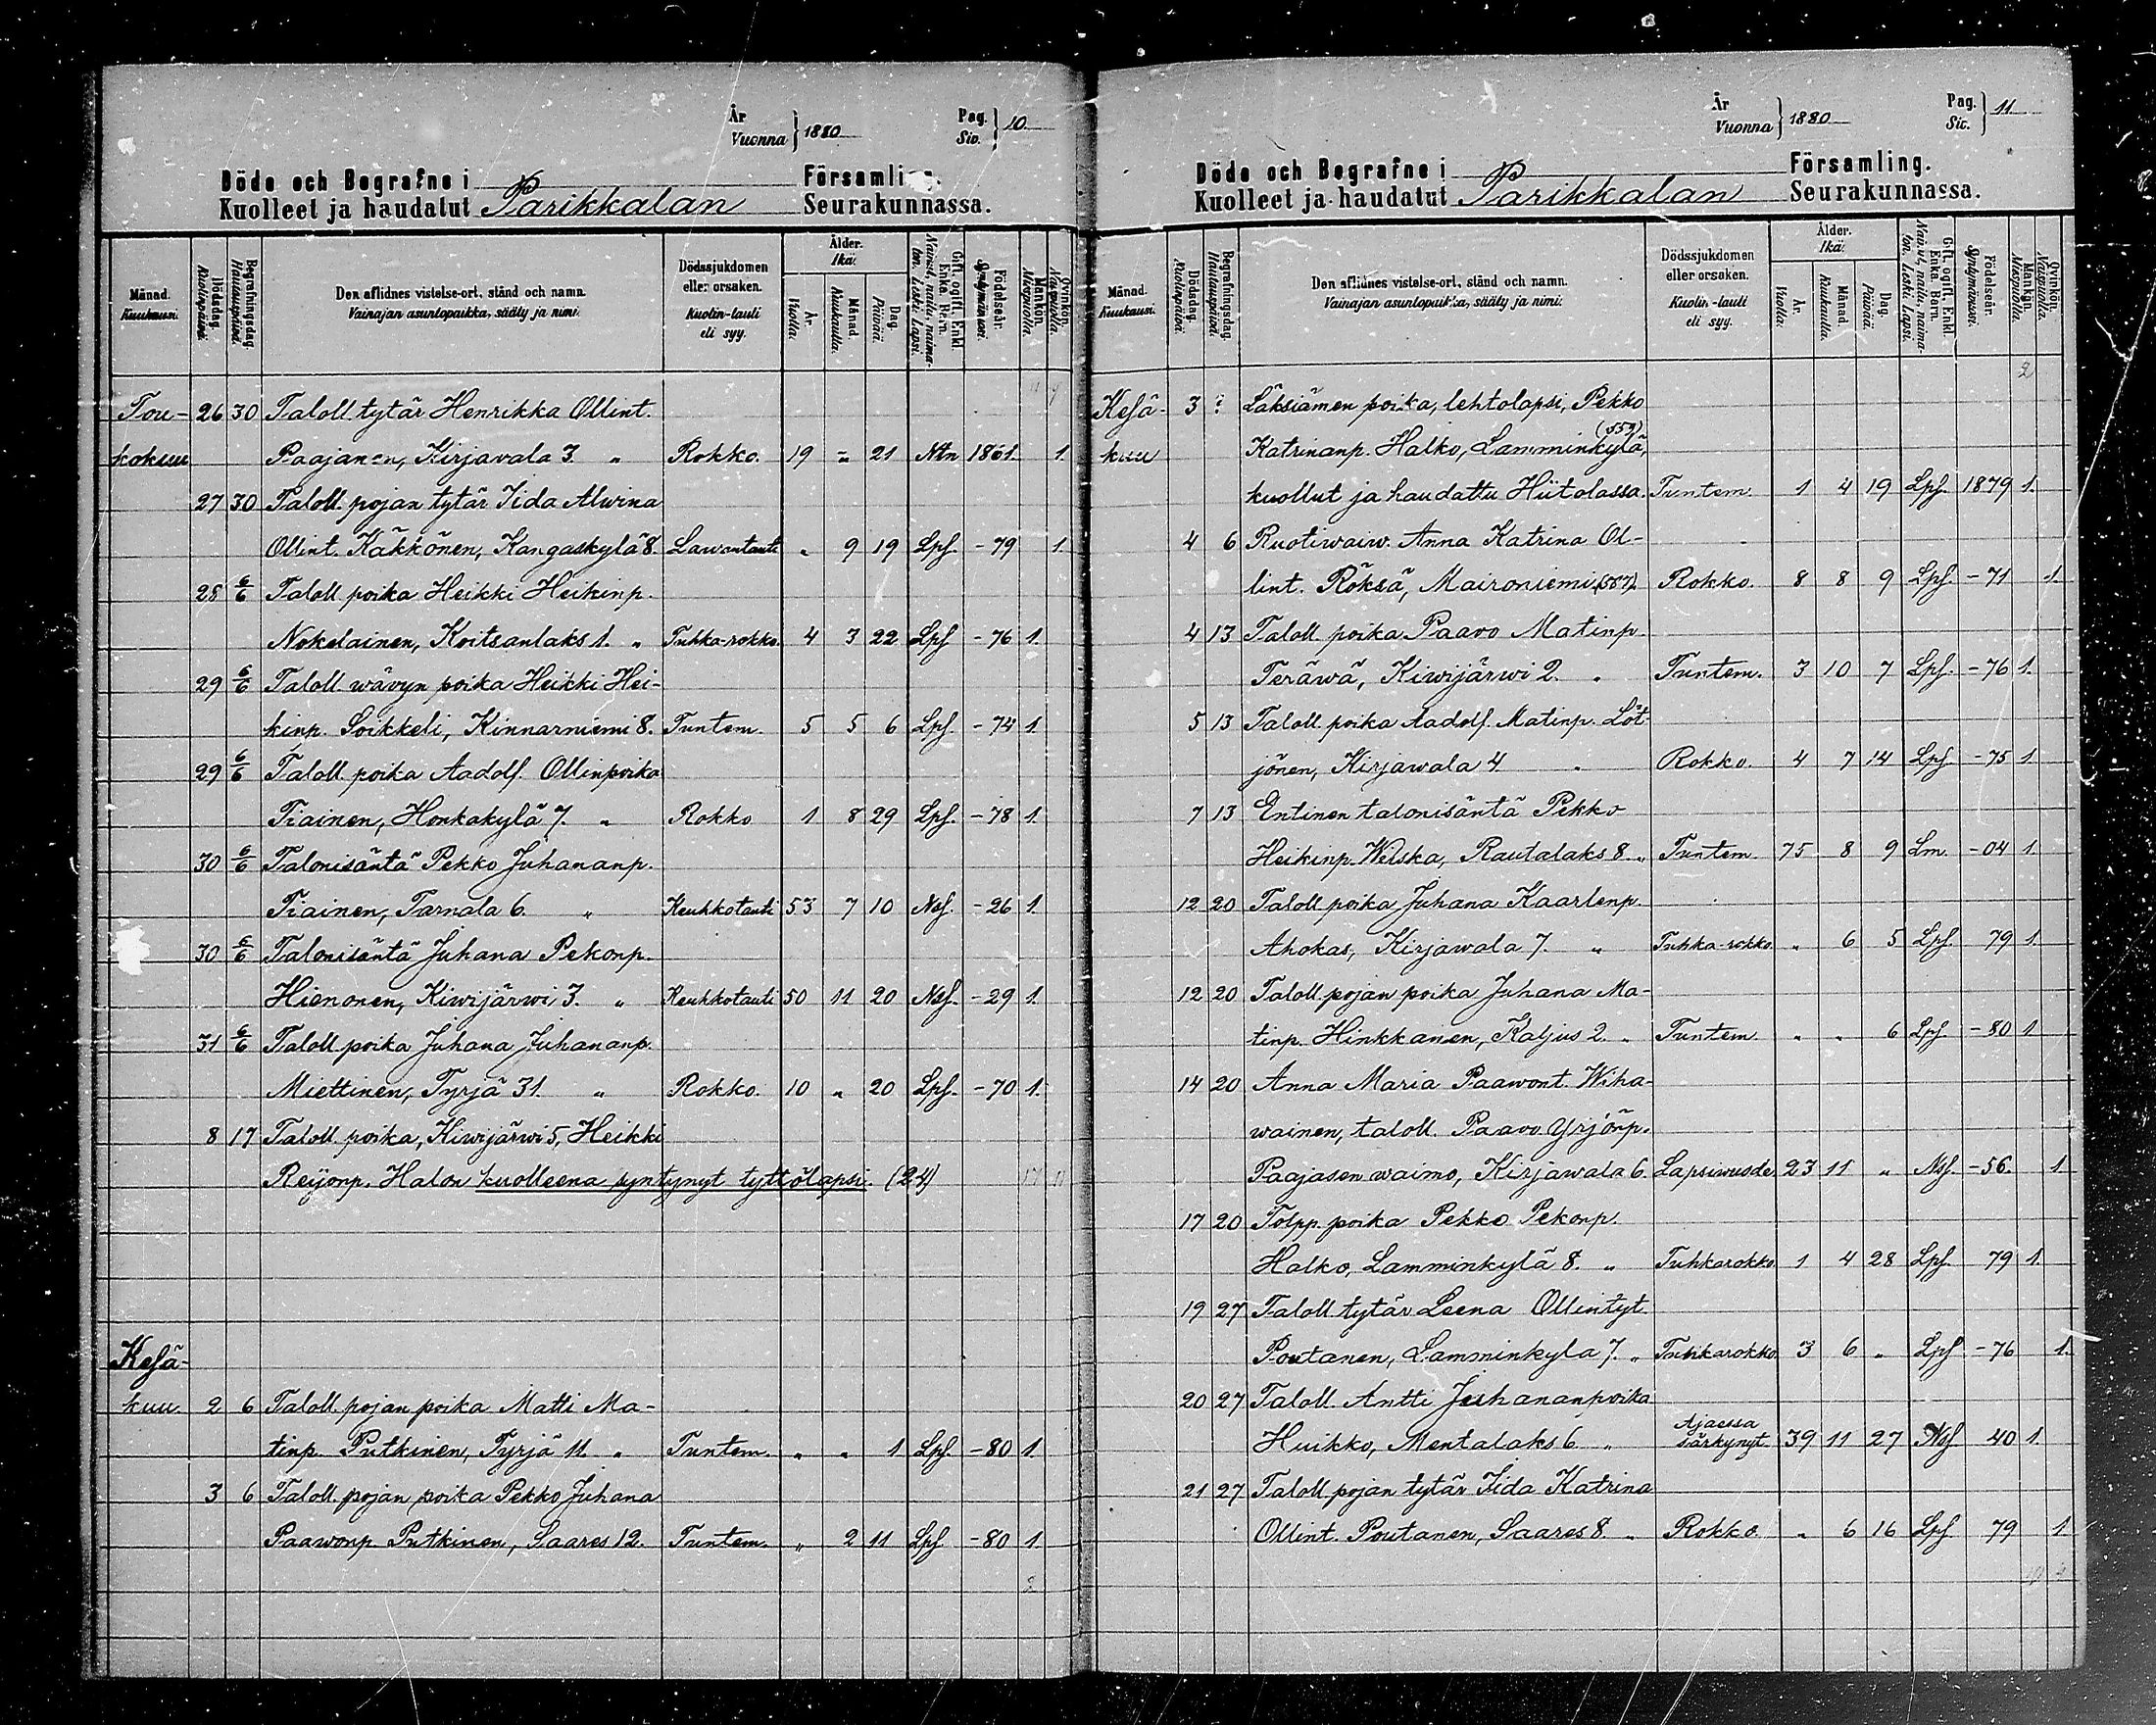 År
Vuonna } 1880
Pag.
Siv. } 10.
Döde och Begrafne i Församling.
Kuolleet ja haudatut Parikkalan Seurakunnassa.
Månad. Kuukausi.
Dödsdag. Kuolinpäivä.
Begrafningsdag. Hautauspäivä.
Den aflidnes vistelse-ort, stånd och namn.
Vainajan asuntopaikka, sääty ja nimi.
Dödssjukdomen eller orsaken.
Kuolin-tauti eli syy.
Ålder. Ikä.
År. Vuotta.
Månad. Kuukautta.
Dag. Päivää.
Gift, ogift, Enkl. Enka. Barn.
Nainut, naitu, naimaton. Leski. Lapsi.
Födelseår. Syntymävuosi.
Mankön. Miespuolta.
Qvinkön. Naispuolta.
Tou- 26 30 Taloll. tytär Henrikka Ollint.
kokuu Paajanen, Kirjavala 3. " Rokko. 19 " 21 Ntn 1861. 1.
27 30 Taloll. pojan tytär Iida Alwina
Ollint. Käkkönen, Kangaskylä 8. Lawantauti " 9 19 Lps. -79 1.
28 6/6 Taloll. poika Heikki Heikinp.
Nokelainen, Koitsanlaks 1. " Tuhka-rokko. 4 3 22 Lps -76 1.
29 6/6 Taloll. wävyn poika Heikki Hei-
kinp. Soikkeli, Kinnarniemi 8. Tuntem. 5 5 6 Lps. -74 1.
29 6/6 Taloll. poika Aadolf Ollinpoika
Tiainen, Honkakylä 7. " Rokko 1 8 29 Lps. -78 1.
30 6/6 Talonisäntä Pekko Juhananp.
Tiainen, Tarnala 6. " Keuhkotauti 53 7 10 Nsf. -26 1.
30 6/6 Talonisäntä Juhana Pekonp.
Hienonen, Kiwijärwi 3. " Keuhkotauti 50 11 20 Nsf. -29 1.
31 6/6 Taloll. poika Juhana Juhananp.
Miettinen, Tyrjä 31. " Rokko. 10 " 20 Lps. -70 1.
8 17 Taloll. poika, Kiwijärwi 5, Heikki
Reijonp. Halon kuolleena syntynyt tyttölapsi. (24)
Kesä-
kuu. 2 6 Taloll. pojan poika Matti Ma-
tinp. Putkinen, Tyrjä 11. " Tuntem. " " 1 Lps. -80 1.
3 6 Taloll. pojan poika Pekko Juhana
Paawonp Putkinen, Saares 12. Tuntem. " 2 11 Lps -80 1.
2
År
Vuonna } 1880
Pag.
Siv. } 11.
Döde och Begrafne i Församling.
Kuolleet ja haudatut Parikkalan Seurakunnassa.
Månad. Kuukausi.
Dödsdag. Kuolinpäivä.
Begrafningsdag. Hautauspäivä.
Den aflidnes vistelse-ort, stånd och namn.
Vainajan asuntopaikka, sääty ja nimi.
Dödssjukdomen eller orsaken.
Kuolin-tauti eli syy.
Ålder. Ikä.
År. Vuotta.
Månad. Kuukautta.
Dag. Päivää.
Gift, ogift, Enkl. Enka. Barn.
Nainut, naitu, naimaton. Leski. Lapsi.
Födelseår. Syntymävuosi.
Mankön. Miespuolta.
Qvinkön. Naispuolta.
2
Kesä- 3 ? Läksiämen poika, lehtolapsi, Pekko
(559)
kuu Katrinanp. Halko, Lamminkylä,
kuollut ja haudattu Hiitolassa. Tuntem. 1 4 19 Lps. 1879 1.
4 6 Ruotiwaiw. Anna Katrina Ol-
lint. Röksä, Maironiemi (587). Rokko. 8 8 9 Lps. -71 1.
4 13 Taloll. poika Paavo Matinp.
Teräwä, Kiwijärwi 2. " Tuntem. 3 10 7 Lps. -76 1.
5 13 Taloll. poika Aadolf Matinp. Löt-
jönen, Kirjawala 4 " Rokko. 4 7 14 Lps -75 1.
7 13 Entinen talonisäntä Pekko
Heikinp. Welska, Rautalaks 8. " Tuntem. 75 8 9 Lm. -04 1.
12 20 Taloll. poika Juhana Kaarlenp.
Ahokas, Kirjawala 7. " Tuhka-rokko. " 6 5 Lps 79 1.
12 20 Taloll. pojan poika Juhana Ma-
tinp. Hinkkanen, Kaljus 2. " Tuntem. " " 6 Lps -80 1
14 20 Anna Maria Paawont. Wiha-
wainen, taloll. Paavo Yrjönp.
Paajasen waimo, Kirjawala 6. Lapsiwuode 23 11 " Nsf. -56. 1.
17 20 Tolpp. poika Pekko Pekonp.
Halko, Lamminkylä 8. " Tuhkarokko 1 4 28 Lps. 79 1.
19 27 Taloll. tytär Leena Ollintyt.
Poutanen, Lamminkyla 7. " Tuhkarokko. 3 6 " Lps -76 1.
20 27 Taloll. Antti Juhananpoika
Huikko, Mentalaks 6. " Ajaessa särkynyt. 39 11 27 Nsf 40 1.
21 27 Taloll. pojan tytär Iida Katrina
Ollint. Poutanen, Saares 8. " Rokko. " 6 16 Lps 79 1